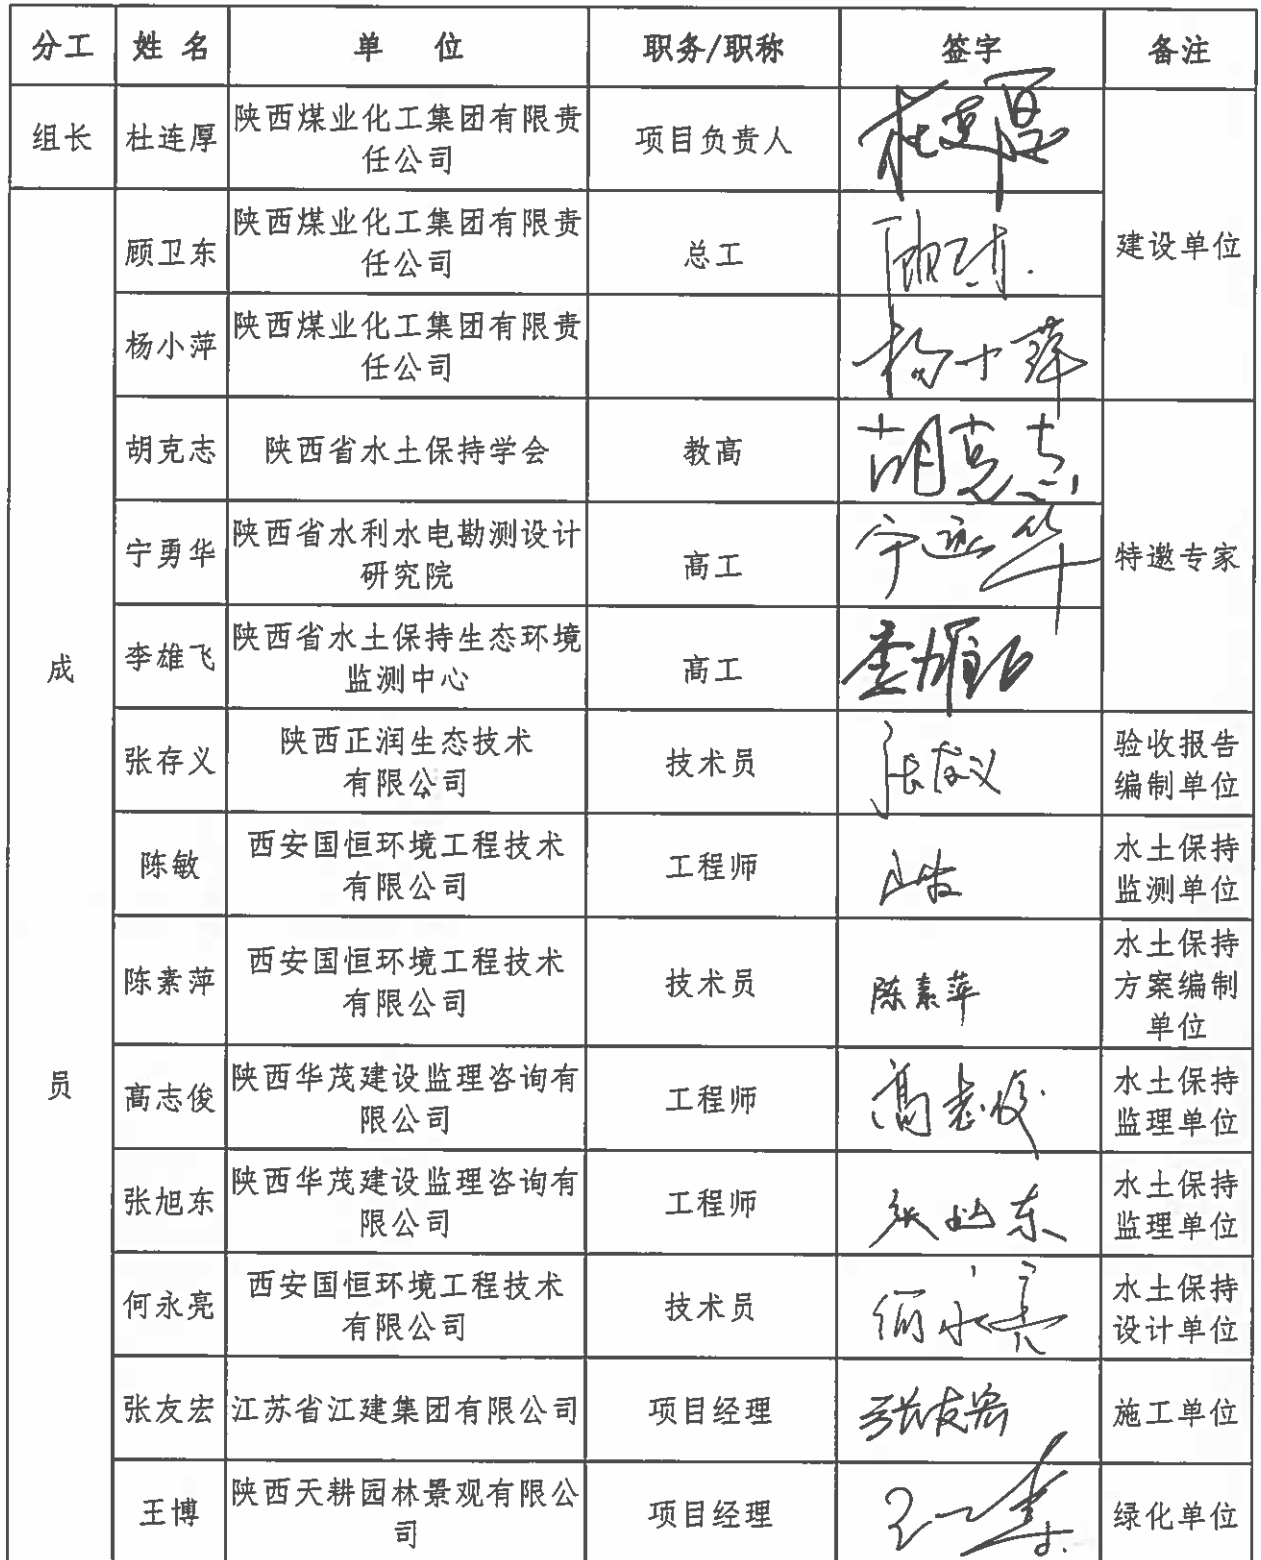 分工 姓 名 单 位 职务/职称 签字 备注
组长 杜连厚 陕西煤业化工集团有限责
任公司 项目负责人 杜连厚 建设单位
成
员
顾卫东 陕西煤业化工集团有限责
任公司 总工
杨小萍 陕西煤业化工集团有限责
任公司 杨小萍
胡克志 陕西省水土保持学会 教高 胡克志 特邀专家
宁勇华 陕西省水利水电勘测设计
研究院 高工
李雄飞 陕西省水土保持生态环境
监测中心 高工
张存义 陕西正润生态技术
有限公司 技术员 张存义 验收报告
编制单位
陈敏 西安国恒环境工程技术
有限公司 工程师 水土保持
监测单位
陈素萍 西安国恒环境工程技术
有限公司 技术员 陈素萍 水土保持
方案编制
单位
高志俊 陕西华茂建设监理咨询有
限公司 工程师 高志俊 水土保持
监理单位
张旭东 陕西华茂建设监理咨询有
限公司 工程师 张旭东 水土保持
监理单位
何永亮 西安国恒环境工程技术
有限公司 技术员 何永亮 水土保持
设计单位
张友宏 江苏省江建集团有限公司 项目经理 张友宏 施工单位
王博 陕西天耕园林景观有限公
司 项目经理 绿化单位